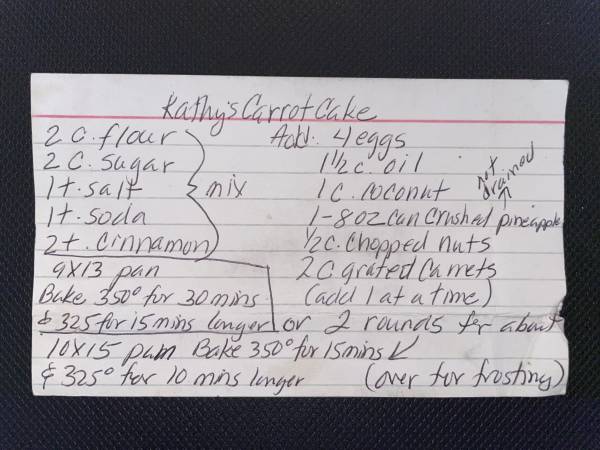 Kathy's Carrot Cake
2 c. flour
2 c. sugar
1 t. salt
1 t. soda
2 t. cinnamon
mix
Add. 4 eggs
1 1/2 c. oil
1 c. coconut
1 - 8 oz can crushed pineapple
not drained
1/2 c. chopped nuts
2 c grated carrets
(add 1 at a time)
9x13 pan
Bake 350° for 30 mins
& 325 for 15 mins longer
or 2 rounds for about
10x15 pan Bake 350° for 15 mins
& 325° for 10 mins longer
(over for frosting)